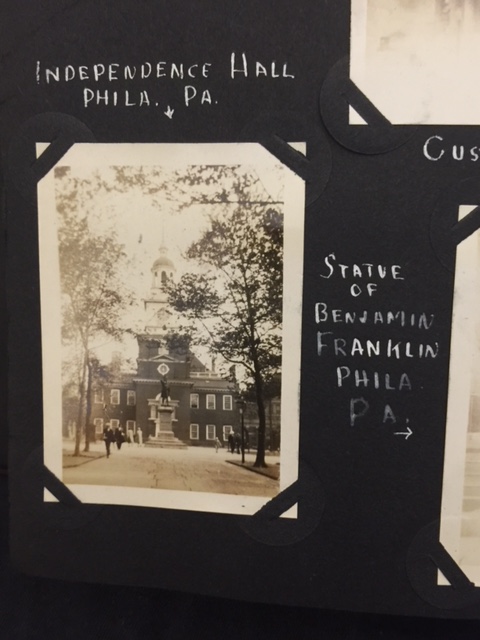 INDEPENDENCE HALL
PHILA. PA.
CUS
STATUE
OF
BENJAMIN
FRANKLIN
PHILA.
PA.